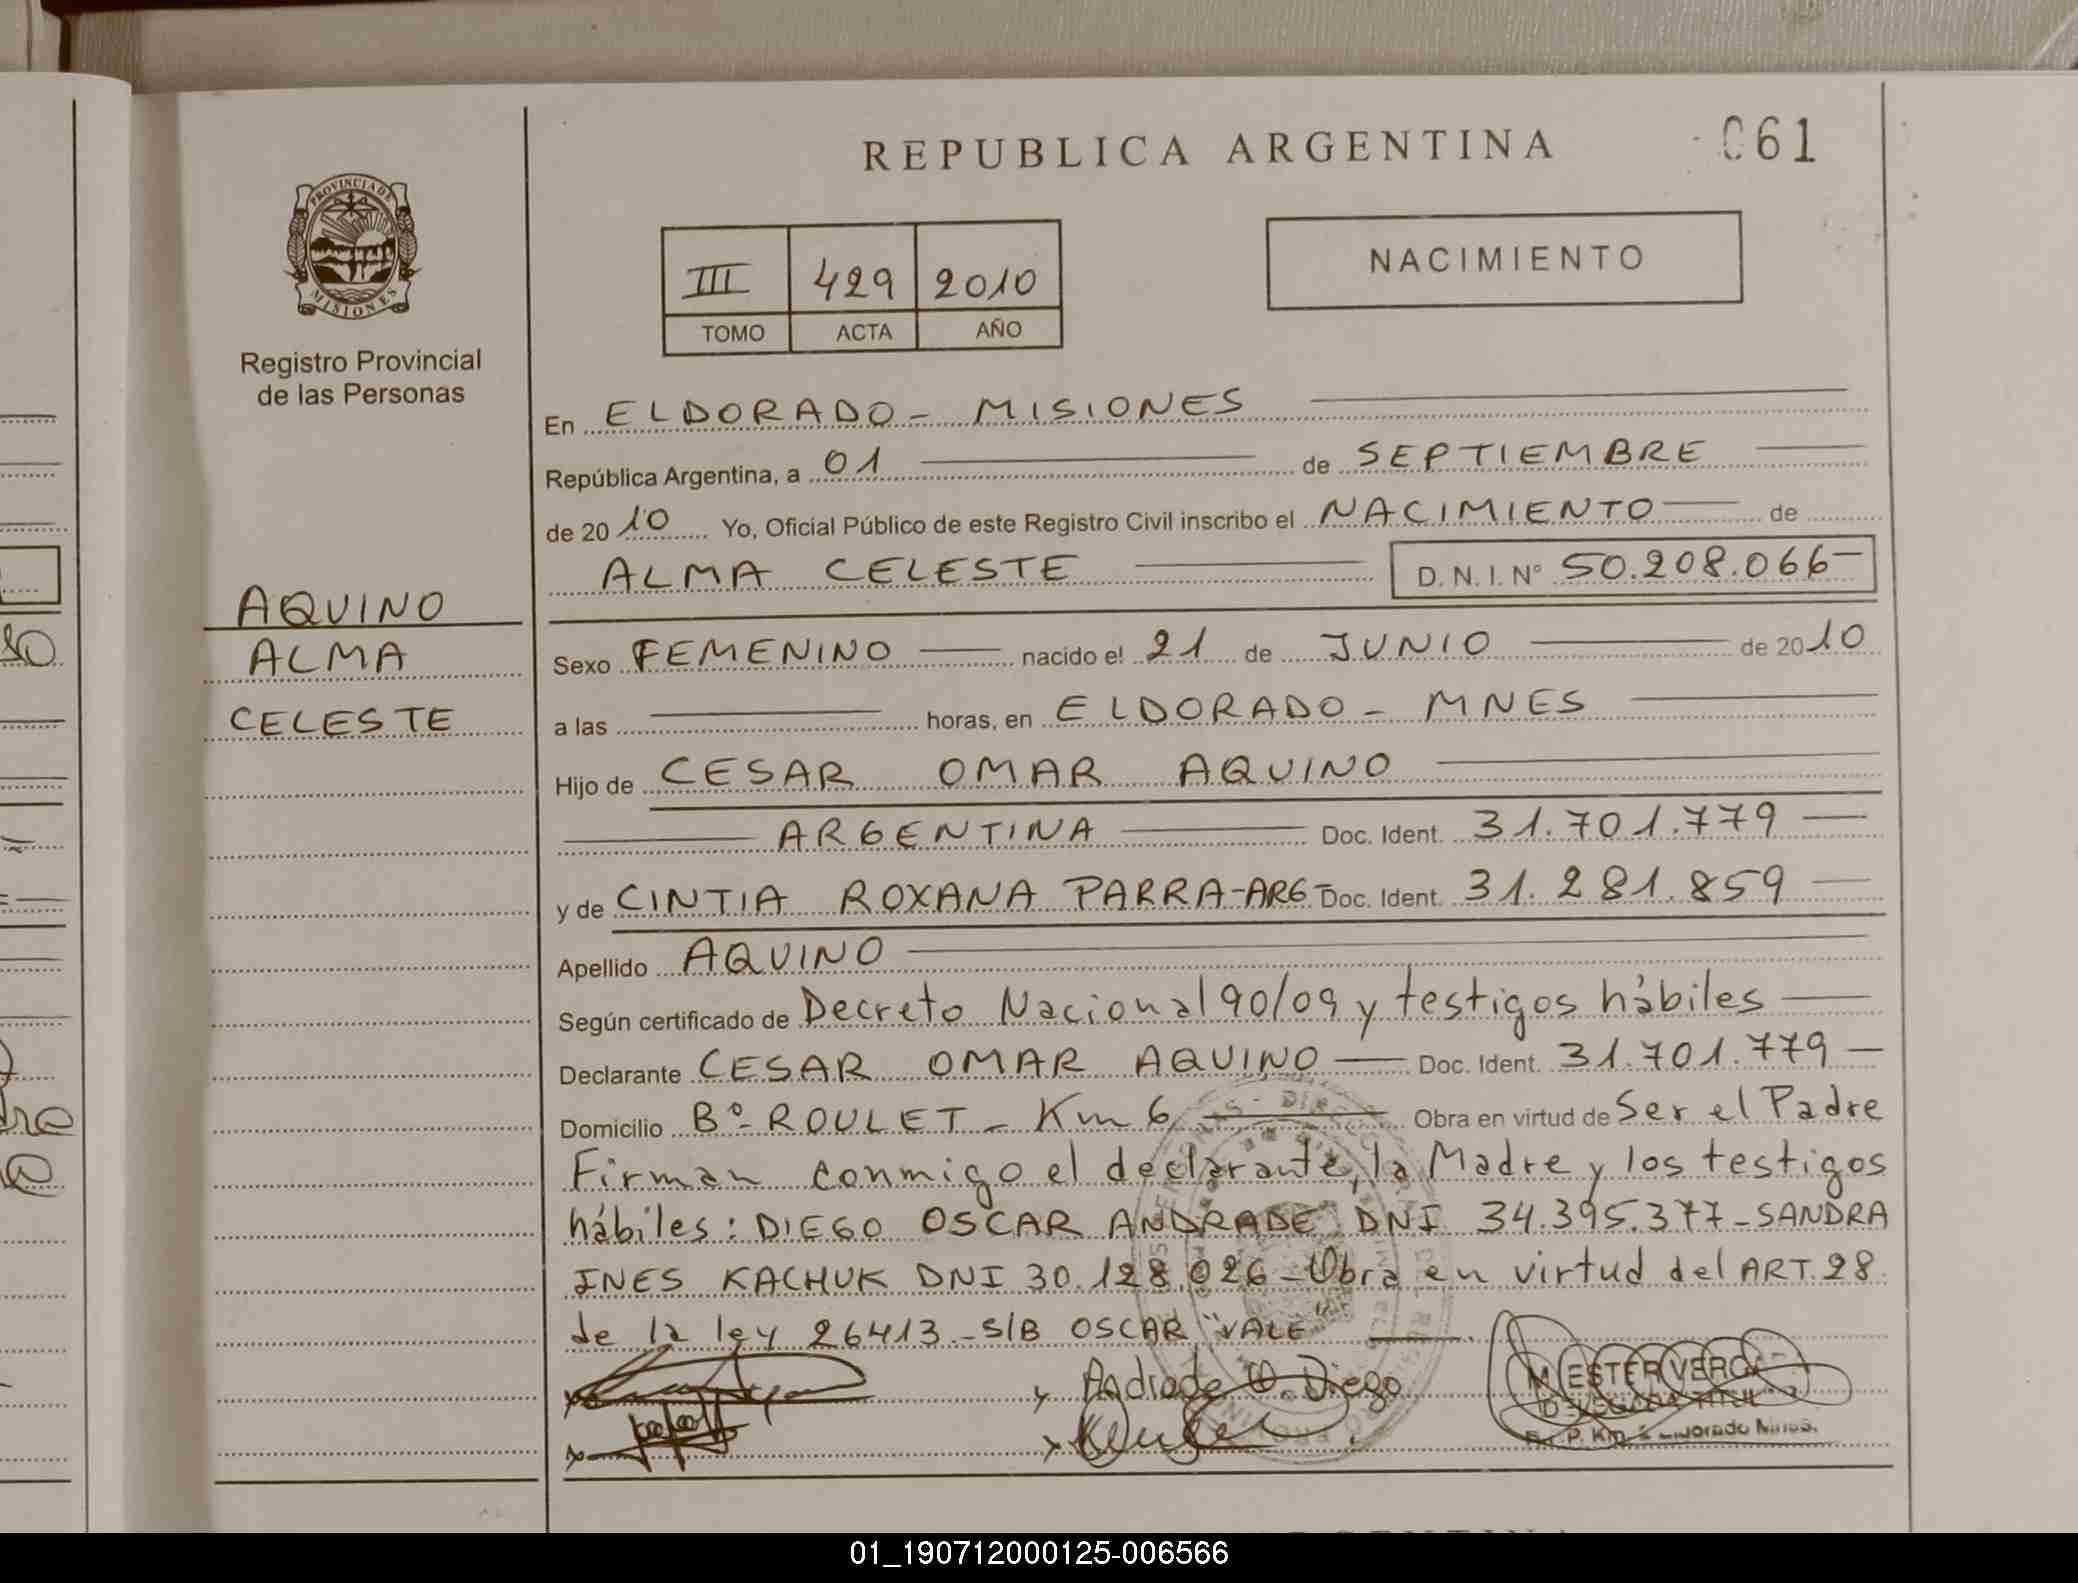 REPUBLICA ARGENTINA
061
PROVINCIA DE
MISIONES
Registro Provincial
de las Personas
III 429 2010
TOMO ACTA AÑO
NACIMIENTO
AQUINO
ALMA
CELESTE
En ELDORADO - MISIONES
República Argentina, a 01 de SEPTIEMBRE
de 2010 Yo, Oficial Público de este Registro Civil inscribo el NACIMIENTO de
ALMA CELESTE D. N. I. Nº 50.208.066
Sexo FEMENINO nacido el 21 de JUNIO de 2010
a las horas, en ELDORADO - MNES
Hijo de CESAR OMAR AQUINO
ARGENTINA Doc. Ident. 31.701.779
y de CINTIA ROXANA PARRA-ARG- Doc. Ident. 31.281.859
Apellido AQUINO
Según certificado de Decreto Nacional 90/09 y testigos hábiles
Declarante CESAR OMAR AQUINO Doc. Ident. 31.701.779
Domicilio Bº-ROULET - Km 6 Obra en virtud de Ser el Padre
Firman conmigo el declarante, la Madre y los testigos
hábiles: DIEGO OSCAR ANDRADE DNI 34.395.377-SANDRA
INES KACHUK DNI 30.128.026-Obra en virtud del ART.28
de la ley 26413.-S/B OSCAR "VALE
Andrade O. Diego
01_190712000125-006566